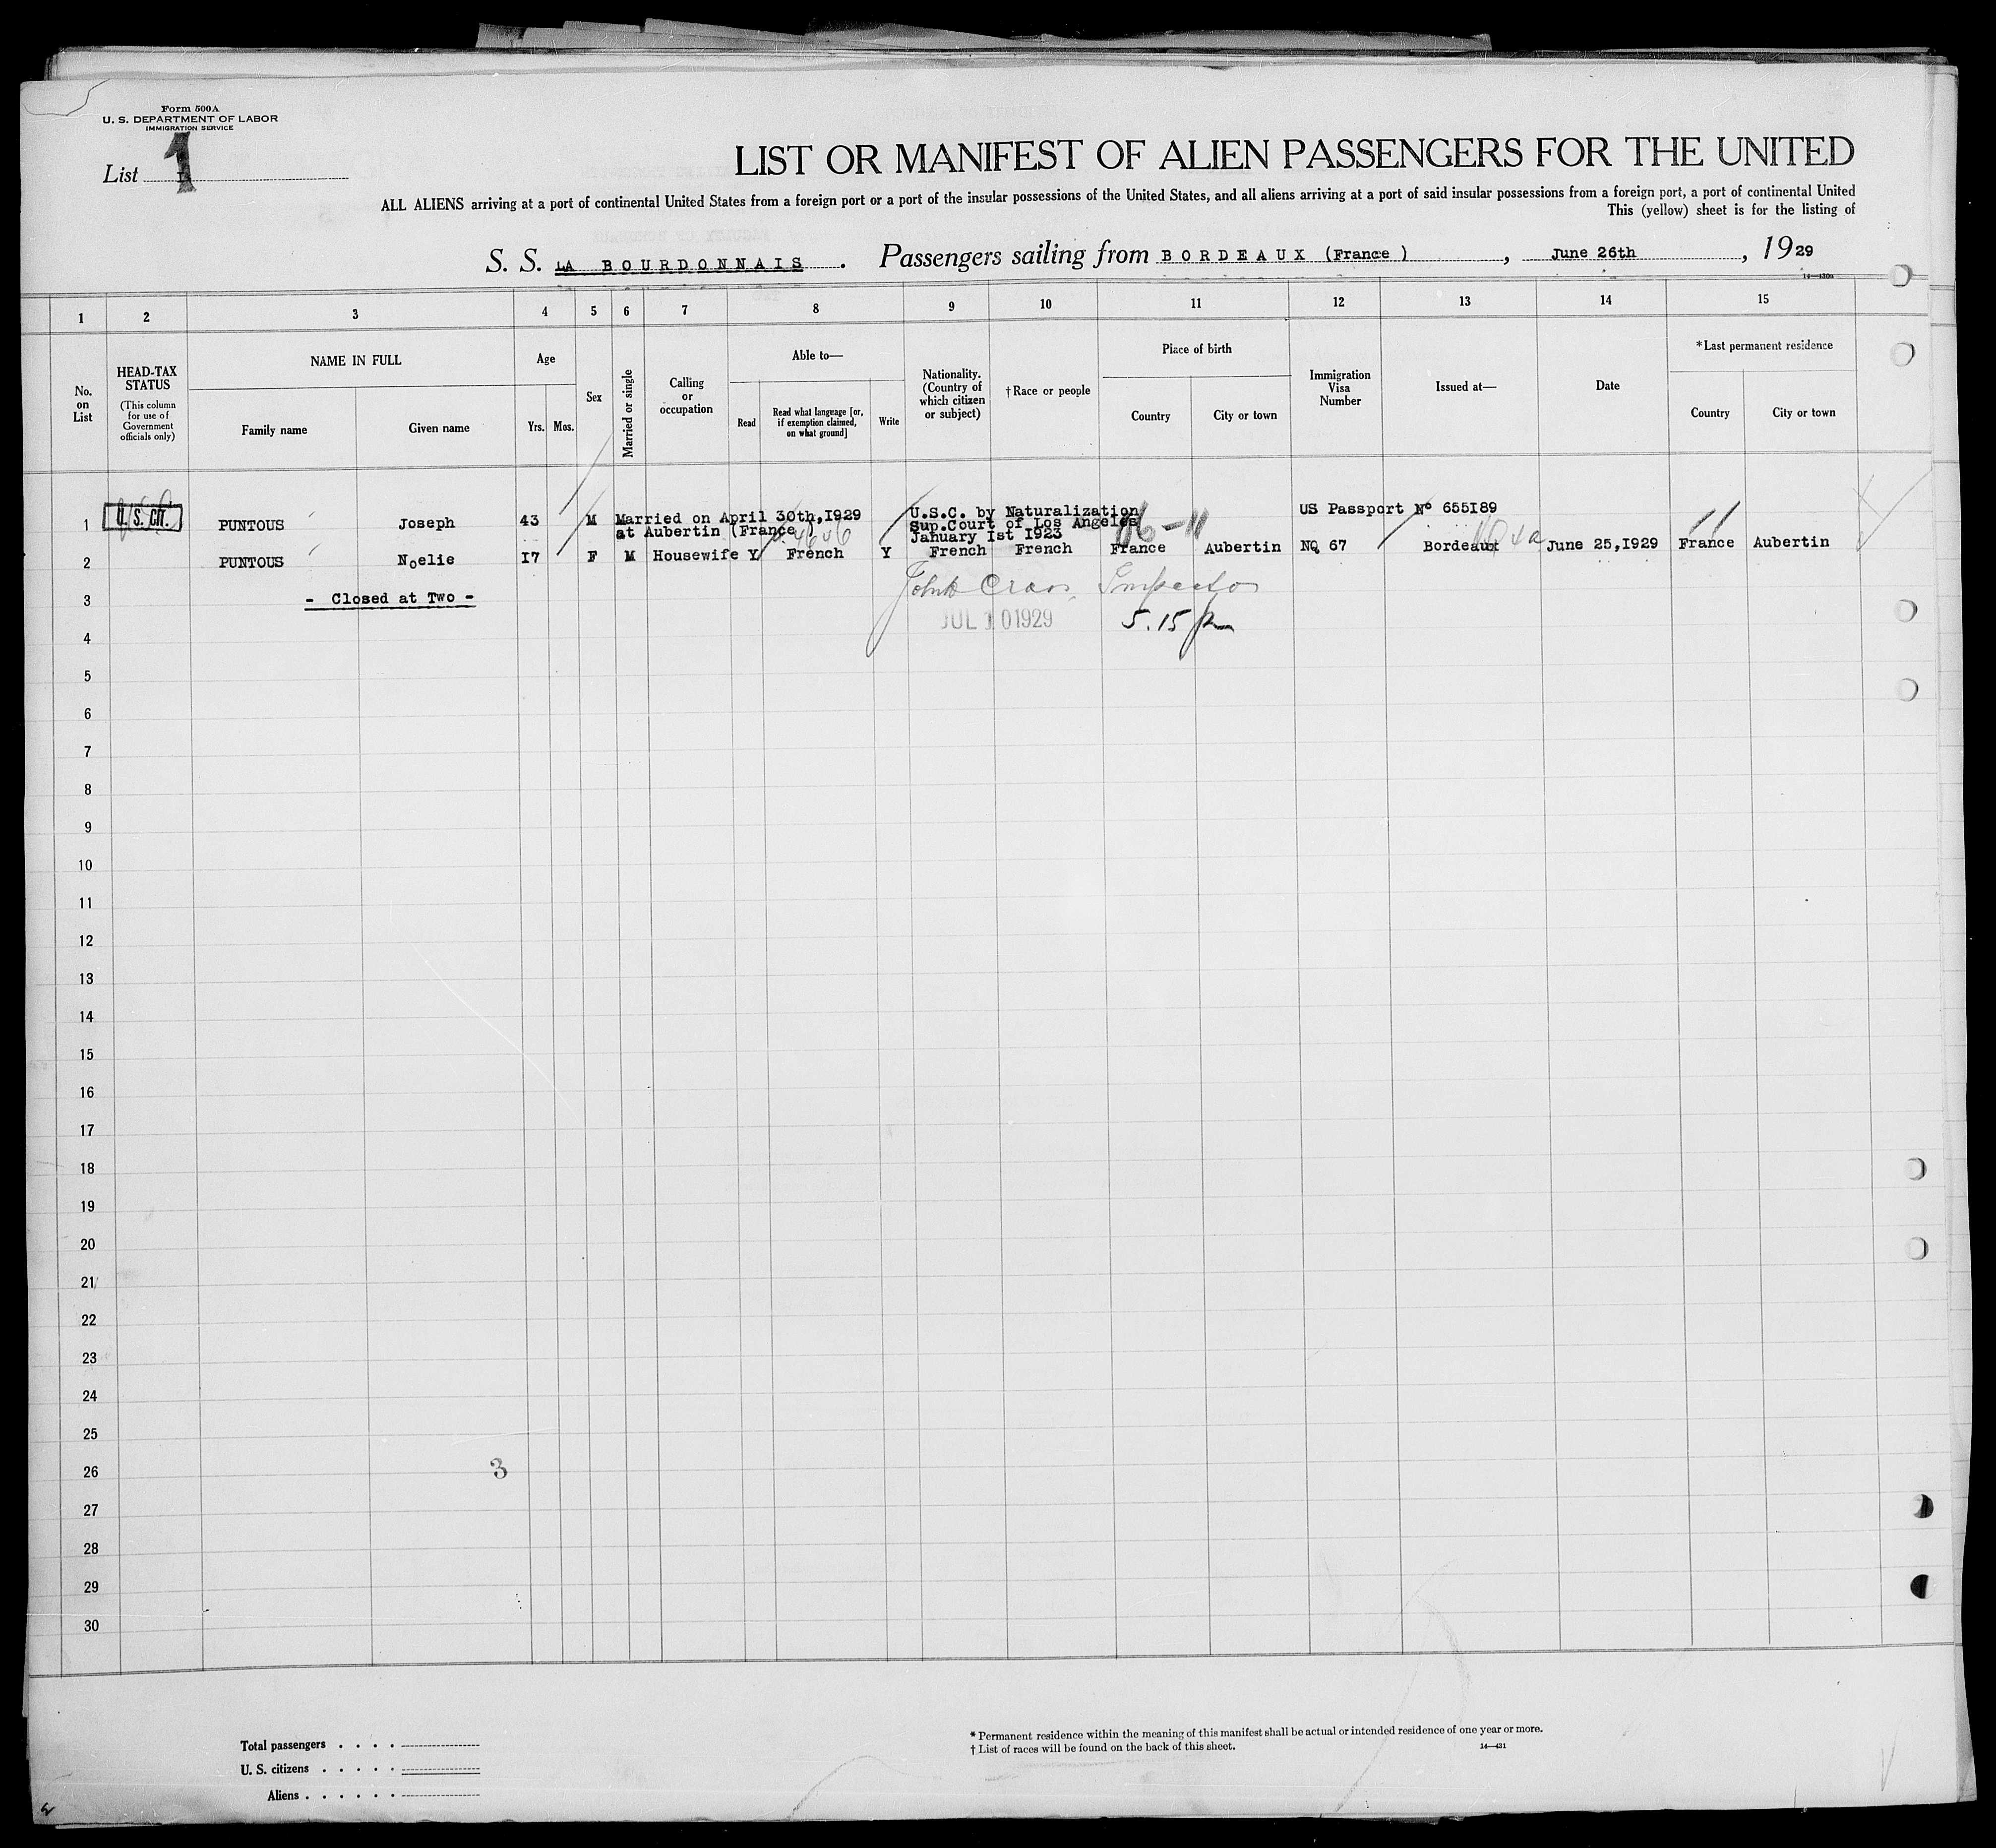 Form 500A
U. S. DEPARTMENT OF LABOR
IMMIGRATION SERVICE
List 1
LIST OR MANIFEST OF ALIEN PASSENGERS FOR THE UNITED
ALL ALIENS arriving at a port of continental United States from a foreign port or a port of the insular possessions of the United States, and all aliens arriving at a port of said insular possessions from a foreign port, a port of continental United
This (yellow) sheet is for the listing of
S. S. LA BOURDONNAIS . Passengers sailing from BORDEAUX (France ) , June 26th , 1929
14—430a
1 2 3 4 5 6 7 8 9 10 11 12 13 14 15
No. on List
HEAD-TAX STATUS
(This column for use of Government officials only)
NAME IN FULL
Family name Given name
Age
Yrs. Mos.
Sex
Married or single
Calling or occupation
Able to—
Read
Read what language [or, if exemption claimed, on what ground]
Write
Nationality. (Country of which citizen or subject)
†Race or people
Place of birth
Country City or town
Immigration Visa Number
Issued at—
Date
*Last permanent residence
Country City or town
1 U. S. CIT. PUNTOUS Joseph 43 M Married on April 30th,I929 at Aubertin (France ) U.S.C. by Naturalization Sup.Court of Los Angeles January Ist I923 US Passport Nº 655I89
2 PUNTOUS Noelie I7 F M Housewife Y French Y French French France Aubertin NQ 67 Bordeaux June 25,I929 France Aubertin
3 - Closed at Two -
JUL 10 1929 5.15 p
4
5
6
7
8
9
10
11
12
13
14
15
16
17
18
19
20
21
22
23
24
25
26
3
27
28
29
30
Total passengers . . . .
U. S. citizens . . . . .
Aliens . . . . . .
* Permanent residence within the meaning of this manifest shall be actual or intended residence of one year or more.
† List of races will be found on the back of this sheet.
14—431